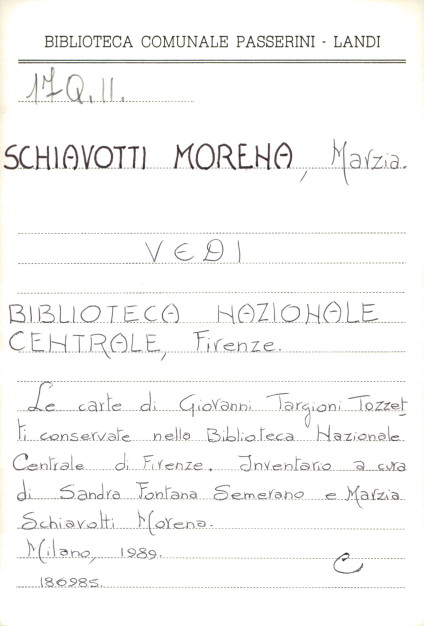 BIBLIOTECA COMUNALE PASSERINI - LANDI
17Q.II.
SCHIAVOTTI MORENA, Marzia.
VEDI
BIBLIOTECA NAZIONALE
CENTRALE, Firenze.
Le carte di Giovanni Targioni Tozzet
ti conservate nella Biblioteca Nazionale
Centrale di Firenze. Inventario a cura
di Sandra Fontana Semerano e Marzia
Schiavotti Morena.
Milano, 1989.
C
186985.